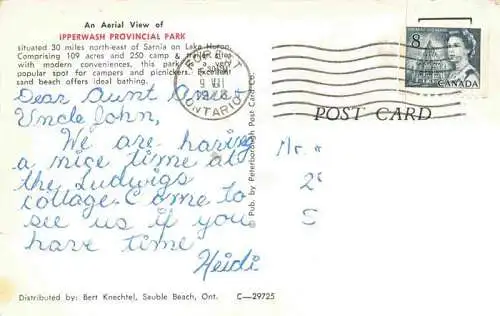 An Aerial View of
IPPERWASH PROVINCIAL PARK
situated 30 miles north-east of Sarnia on Lake Huron.
Comprising 109 acres and 250 camp & trailer sites
with modern conveniences, this park is a very
popular spot for campers and picnickers. Excellent
sand beach offers ideal bathing.
FOREST
ONTARIO
8
CANADA
POST CARD
Dear Aunt
Uncle John,
We are having
a nice time at
the Ludwigs
cottage. Come to
see us if you
have time
Heidi
Mr.
© Pub. by Peterborough Post Card Co.
Distributed by: Bert Knechtel, Sauble Beach, Ont. C-29725